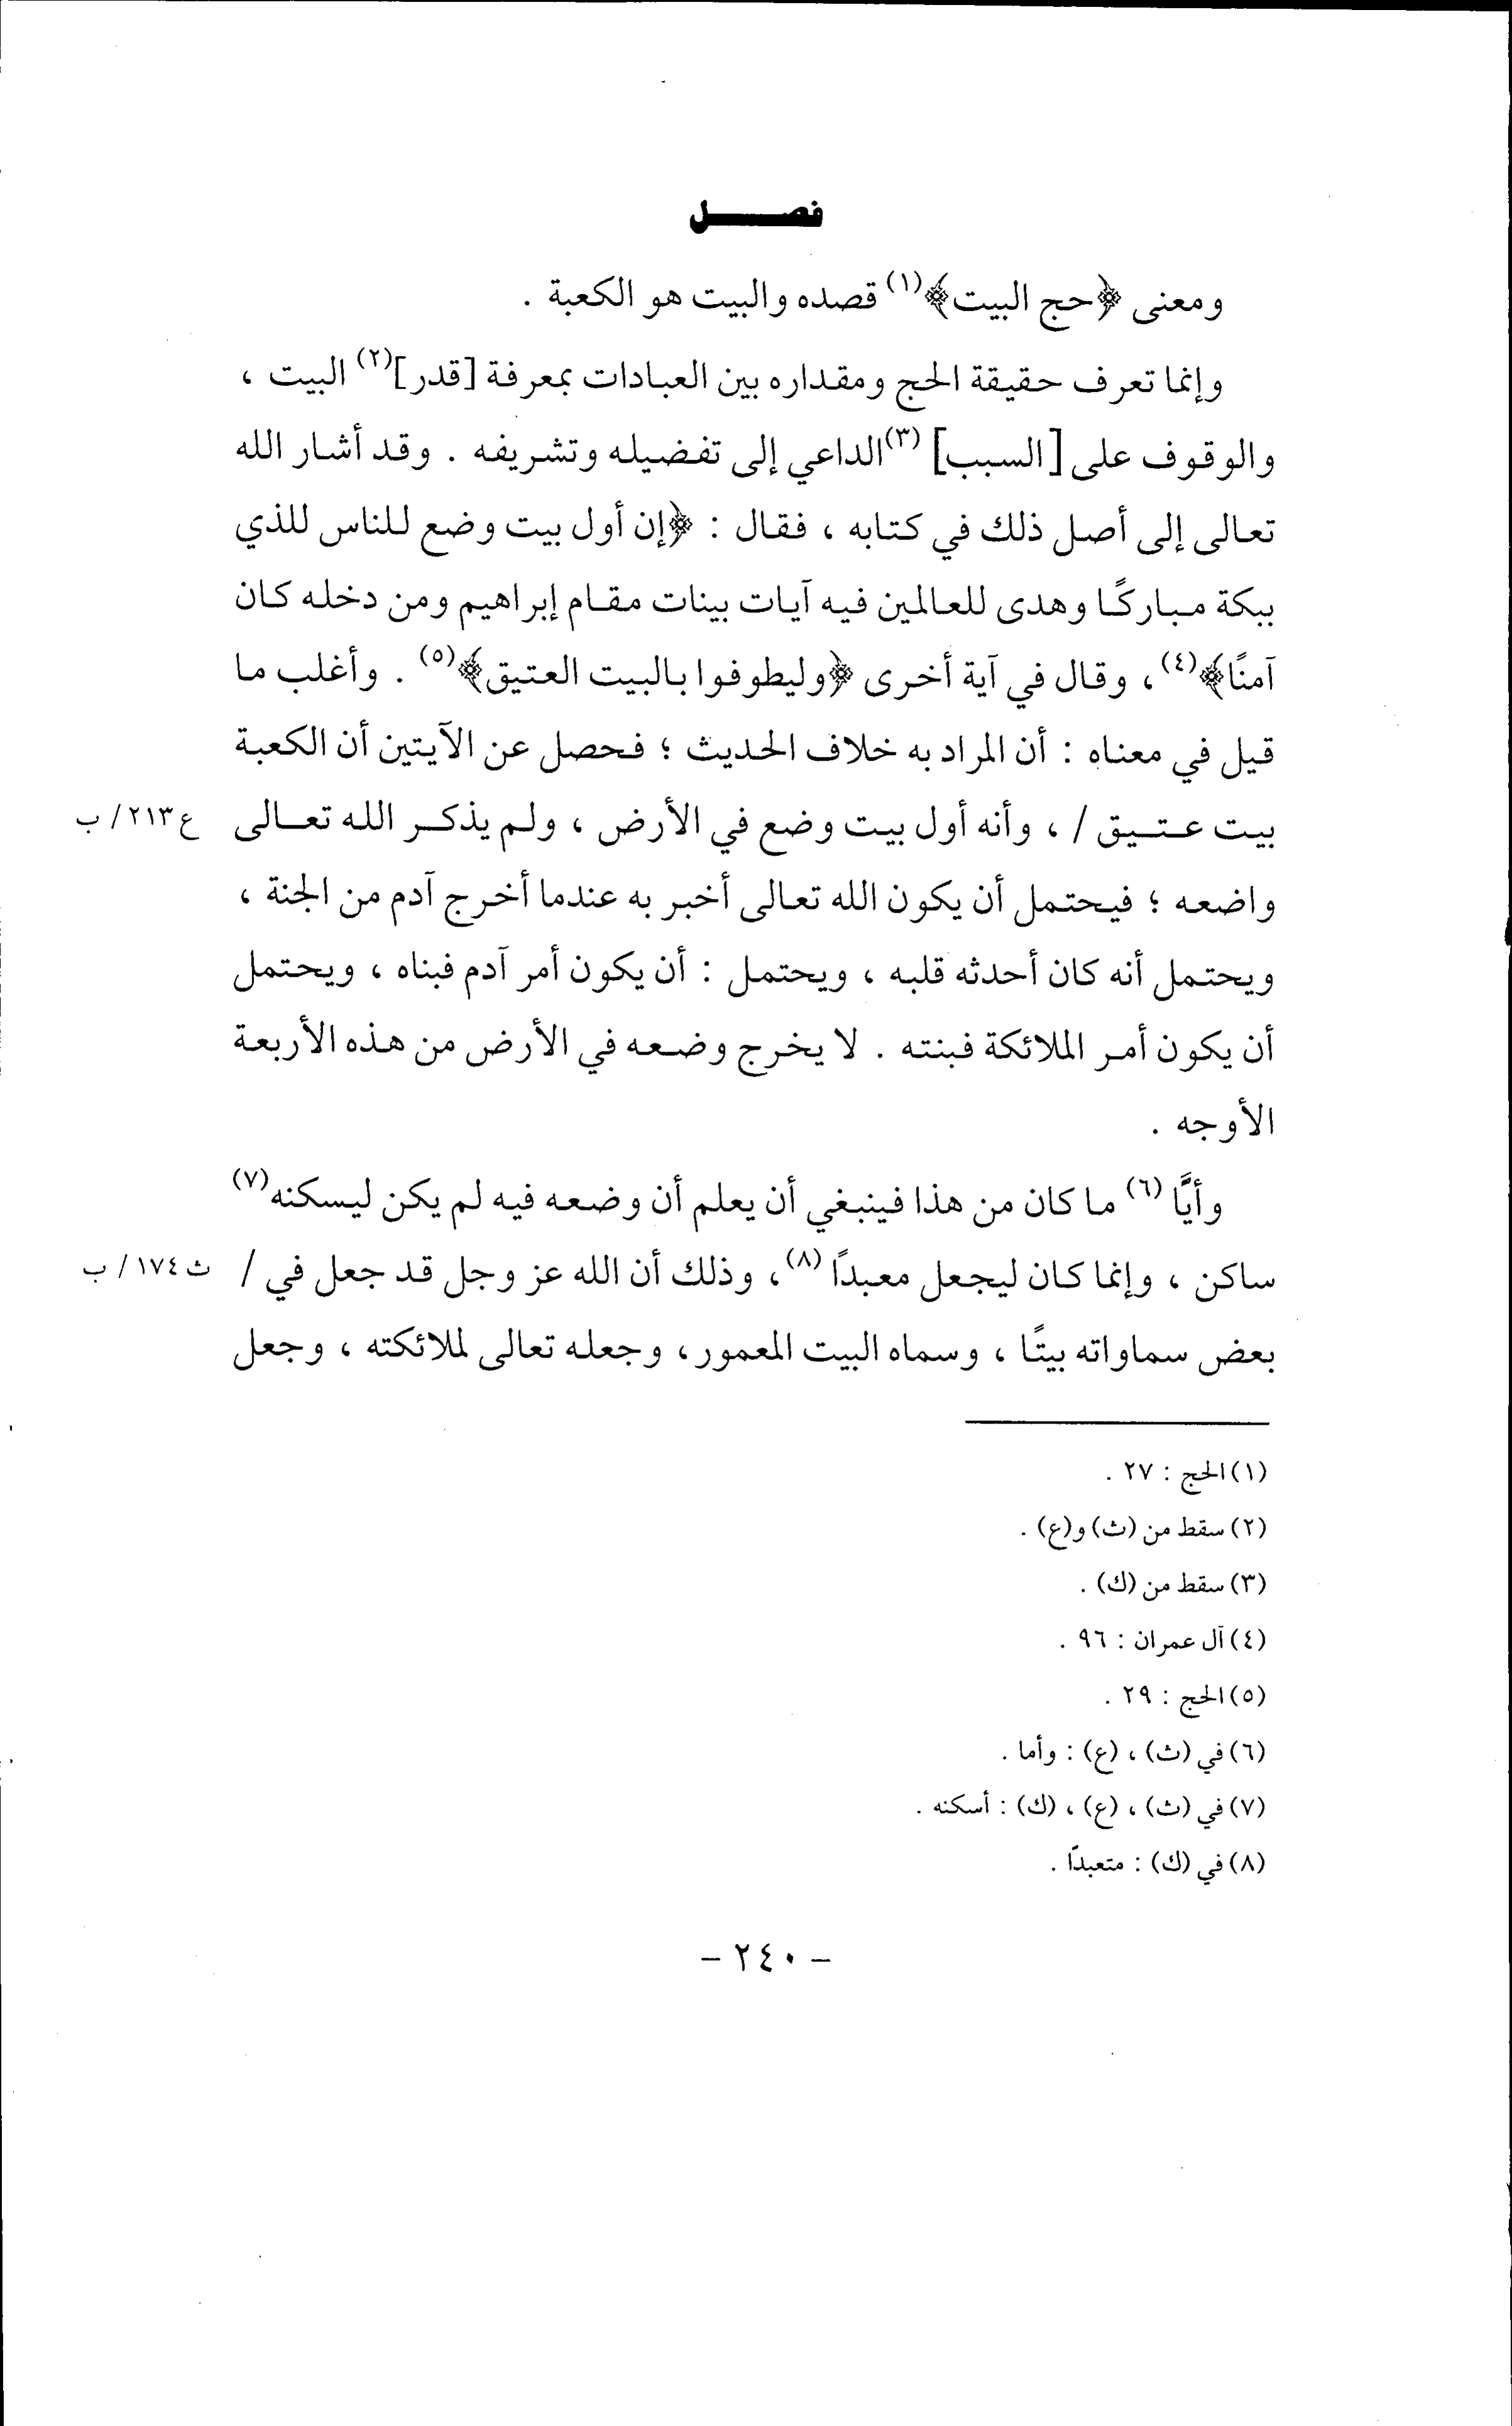 فصـــــل
ومعنى ﴿حج البيت﴾(١) قصده والبيت هو الكعبة .
وإنما تعرف حقيقة الحج ومقداره بين العبادات بمعرفة [قدر](٢) البيت ،
والوقوف على [السبب] (٣)الداعي إلى تفضيله وتشريفه . وقد أشار الله
تعالى إلى أصل ذلك في كتابه ، فقال : ﴿إن أول بيت وضع للناس للذي
ببكة مباركًا وهدى للعالمين فيه آيات بينات مقام إبراهيم ومن دخله كان
آمنًا﴾(٤) ، وقال في آية أخرى ﴿وليطوفوا بالبيت العتيق﴾(٥) . وأغلب ما
قيل في معناه : أن المراد به خلاف الحديث ؛ فحصل عن الآيتين أن الكعبة
بيت عتيق / ، وأنه أول بيت وضع في الأرض ، ولم يذكر الله تعالى ع ٢١٣/ ب
واضعه ؛ فيحتمل أن يكون الله تعالى أخبر به عندما أخرج آدم من الجنة ،
ويحتمل أنه كان أحدثه قلبه ، ويحتمل : أن يكون أمر آدم فبناه ، ويحتمل
أن يكون أمر الملائكة فبنته . لا يخرج وضعه في الأرض من هذه الأربعة
الأوجه .
وأيًّا (٦) ما كان من هذا فينبغي أن يعلم أن وضعه فيه لم يكن ليسكنه(٧)
ساكن ، وإنما كان ليجعل معبدًا (٨) ، وذلك أن الله عز وجل قد جعل في / ث ١٧٤/ ب
بعض سماواته بيتًا ، وسماه البيت المعمور ، وجعله تعالى لملائكته ، وجعل
(١) الحج : ٢٧ .
(٢) سقط من (ث) و(ع) .
(٣) سقط من (ك) .
(٤) آل عمران : ٩٦ .
(٥) الحج : ٢٩ .
(٦) في (ث) ، (ع) : وأما .
(٧) في (ث) ، (ع) ، (ك) : أسكنه .
(٨) في (ك) : متعبدًا .
- ٢٤٠ -